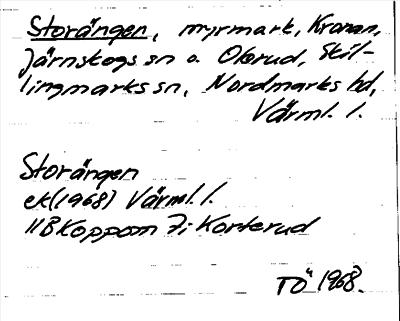 Storängen, myrmark, Kronan,
Järnskogs sn o. Olerud, Skil-
lingmarks sn, Nordmarks hd,
Värml. l.
Storängen
ek (1968) Värml. l.
11B Koppom 7i Korterud
TÖ 1968.